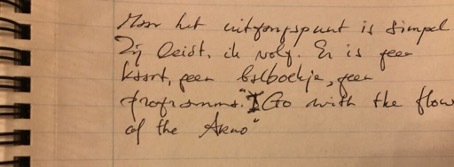 Maar het uitgangspunt is simpel
Zij leidt, ik volg. Er is geen
kaart, geen bolboekje, geen
programma. "I Go with the flow
of the Arno"